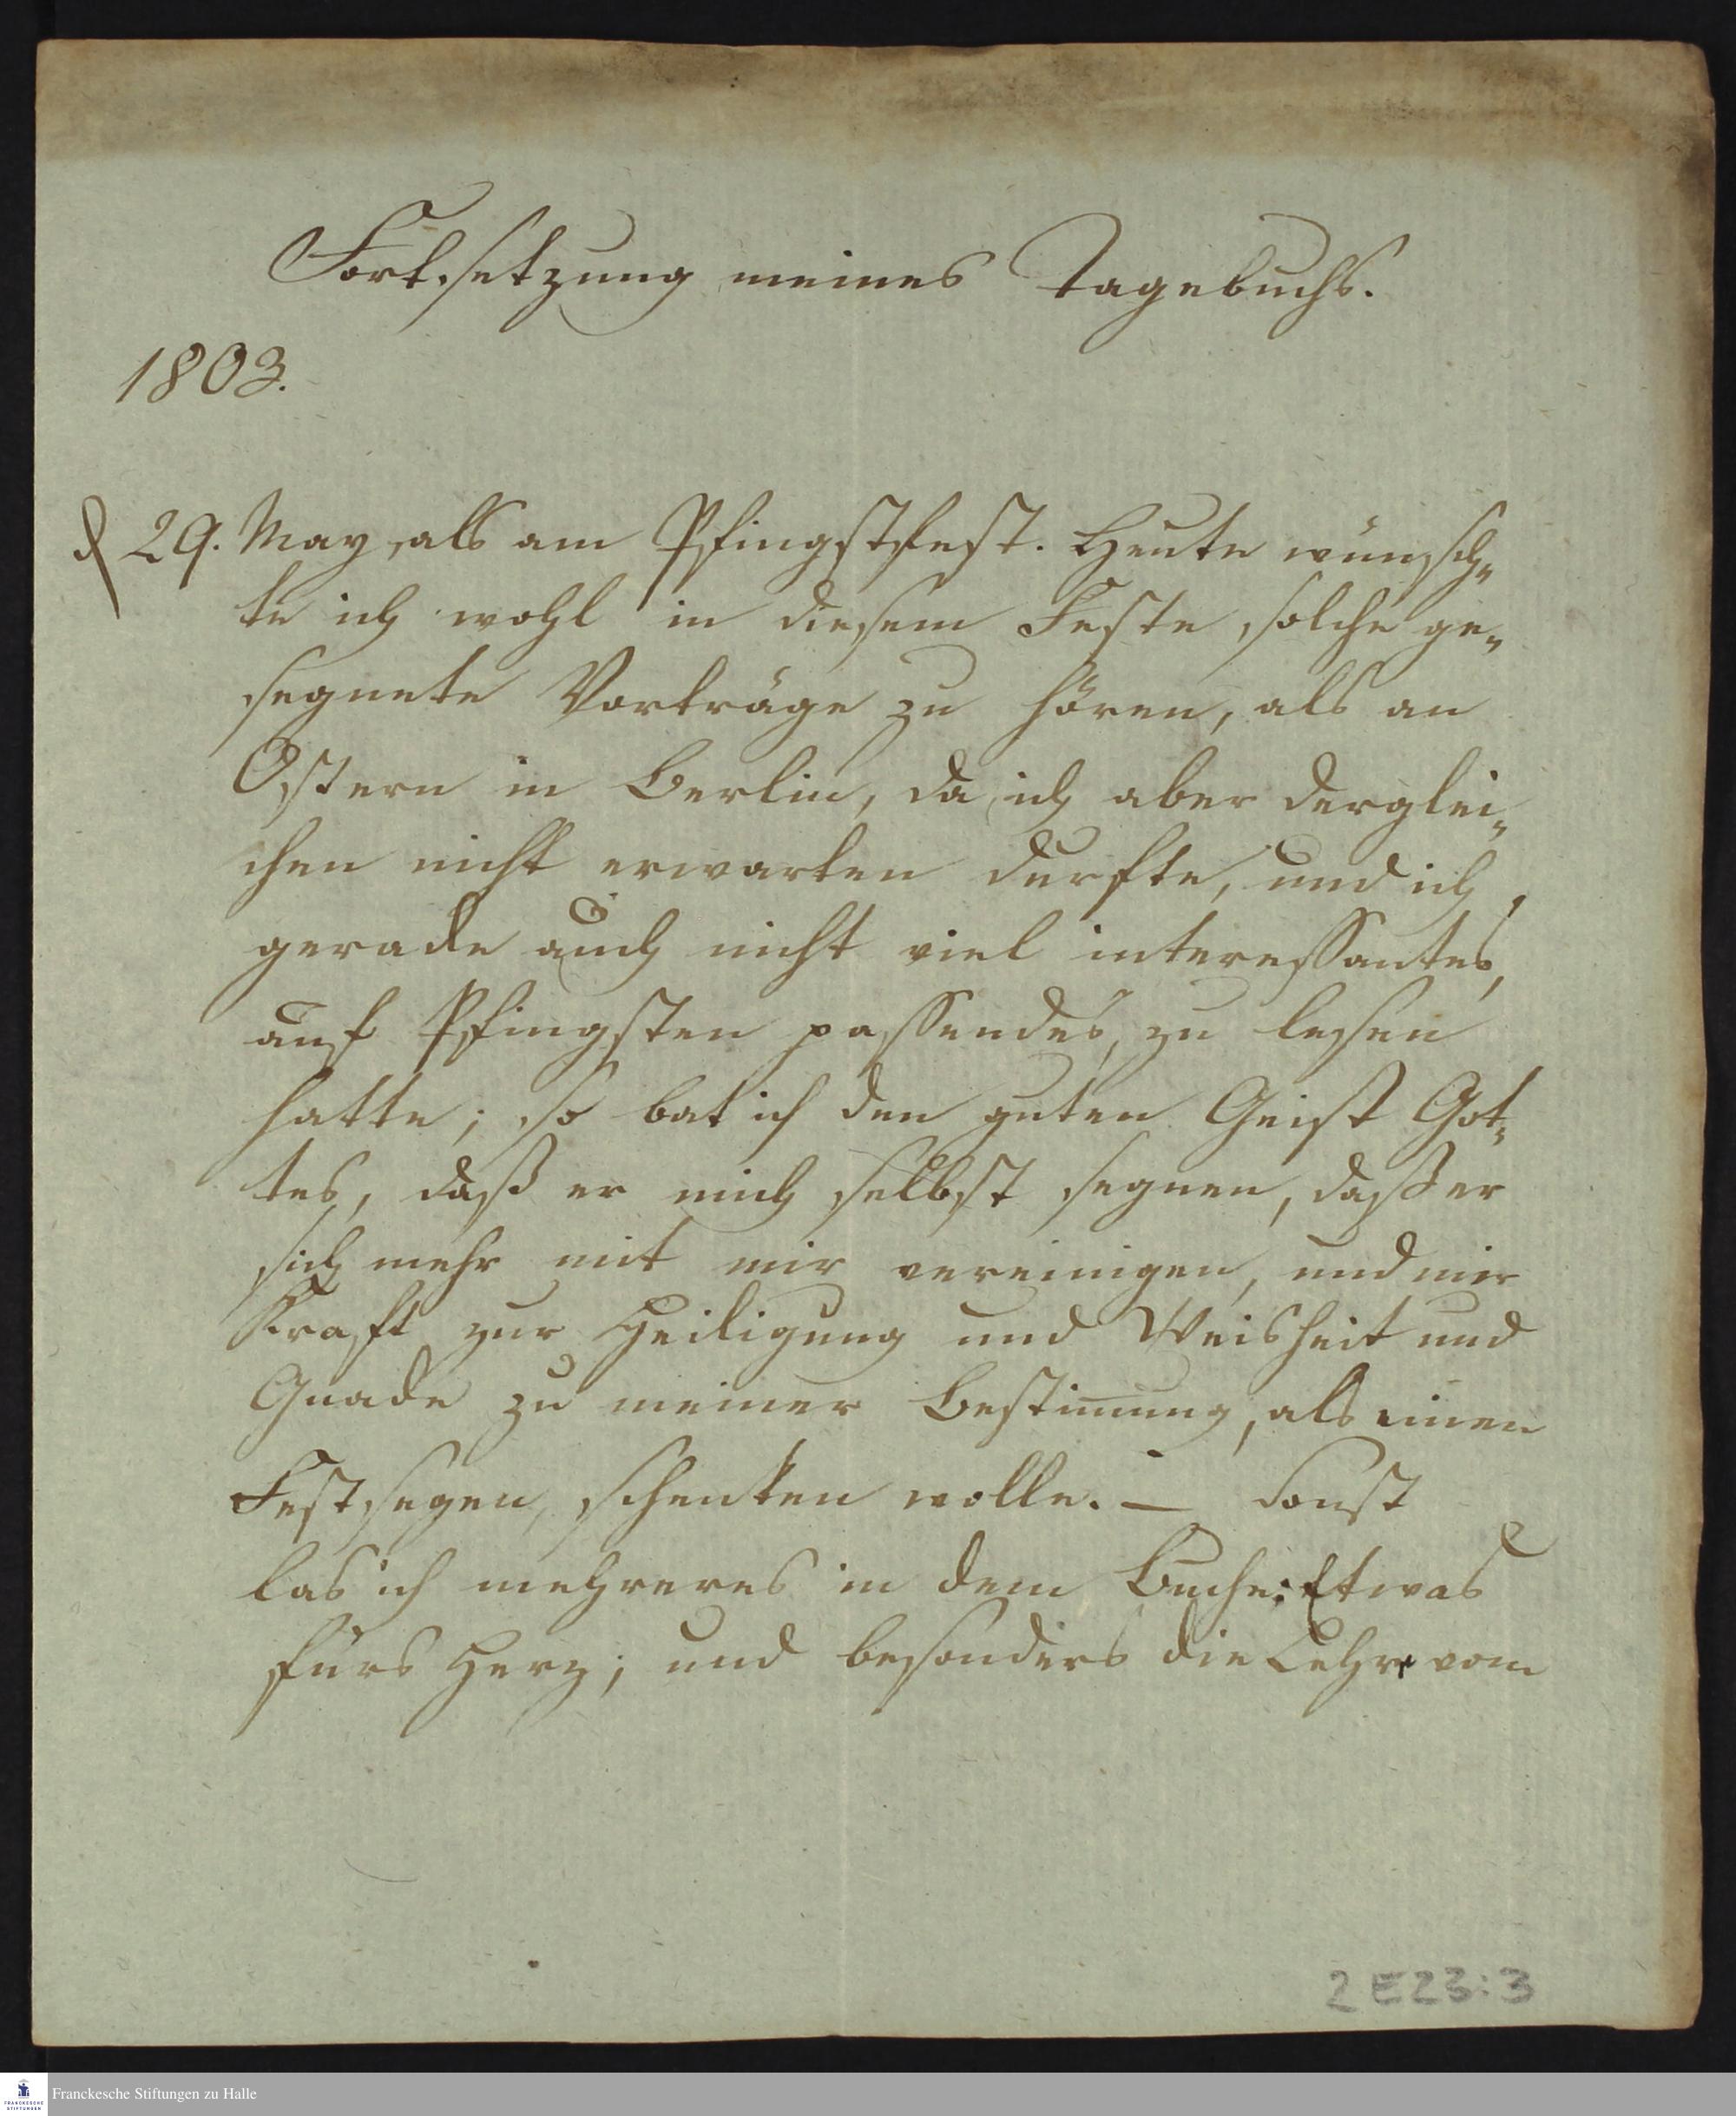 Fortsetzung meines Tagebuchs.
1803.
d 29. May, als am Pfingstfest. Heute wünsch„
te ich wohl in diesem Feste, solche ge„
segnete Vorträge zu hören, als an
Ostern in Berlin, da ich aber derglei„
chen nicht erwarten durfte, und ich
gerade auch nicht viel interessantes,
auf Pfingsten passendes, zu lesen
hatte; so bat ich den guten Geist Got„
tes, daß er mich selbst segnen, daß er
sich mehr mit mir vereinigen, und mir
Kraft zur Heiligung und Weisheit und
Gnade zu meiner Bestim̅ung, als einen
Festsegen, schenken wolle. — Sonst
las ich mehreres in dem Buche: Etwas
fürs Herz; und besonders die Lehre vom
2 E23:3
Franckesche Stiftungen zu Halle
FRANCKESCHE
STIFTUNGEN